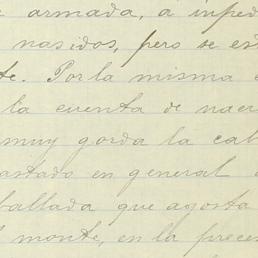 armada, á inped
nasidos, pero se es
te. Por la misma
la cuenta de nacr
muy gorda la cab
astado en general
ballada que agosta
l monte, en la prece